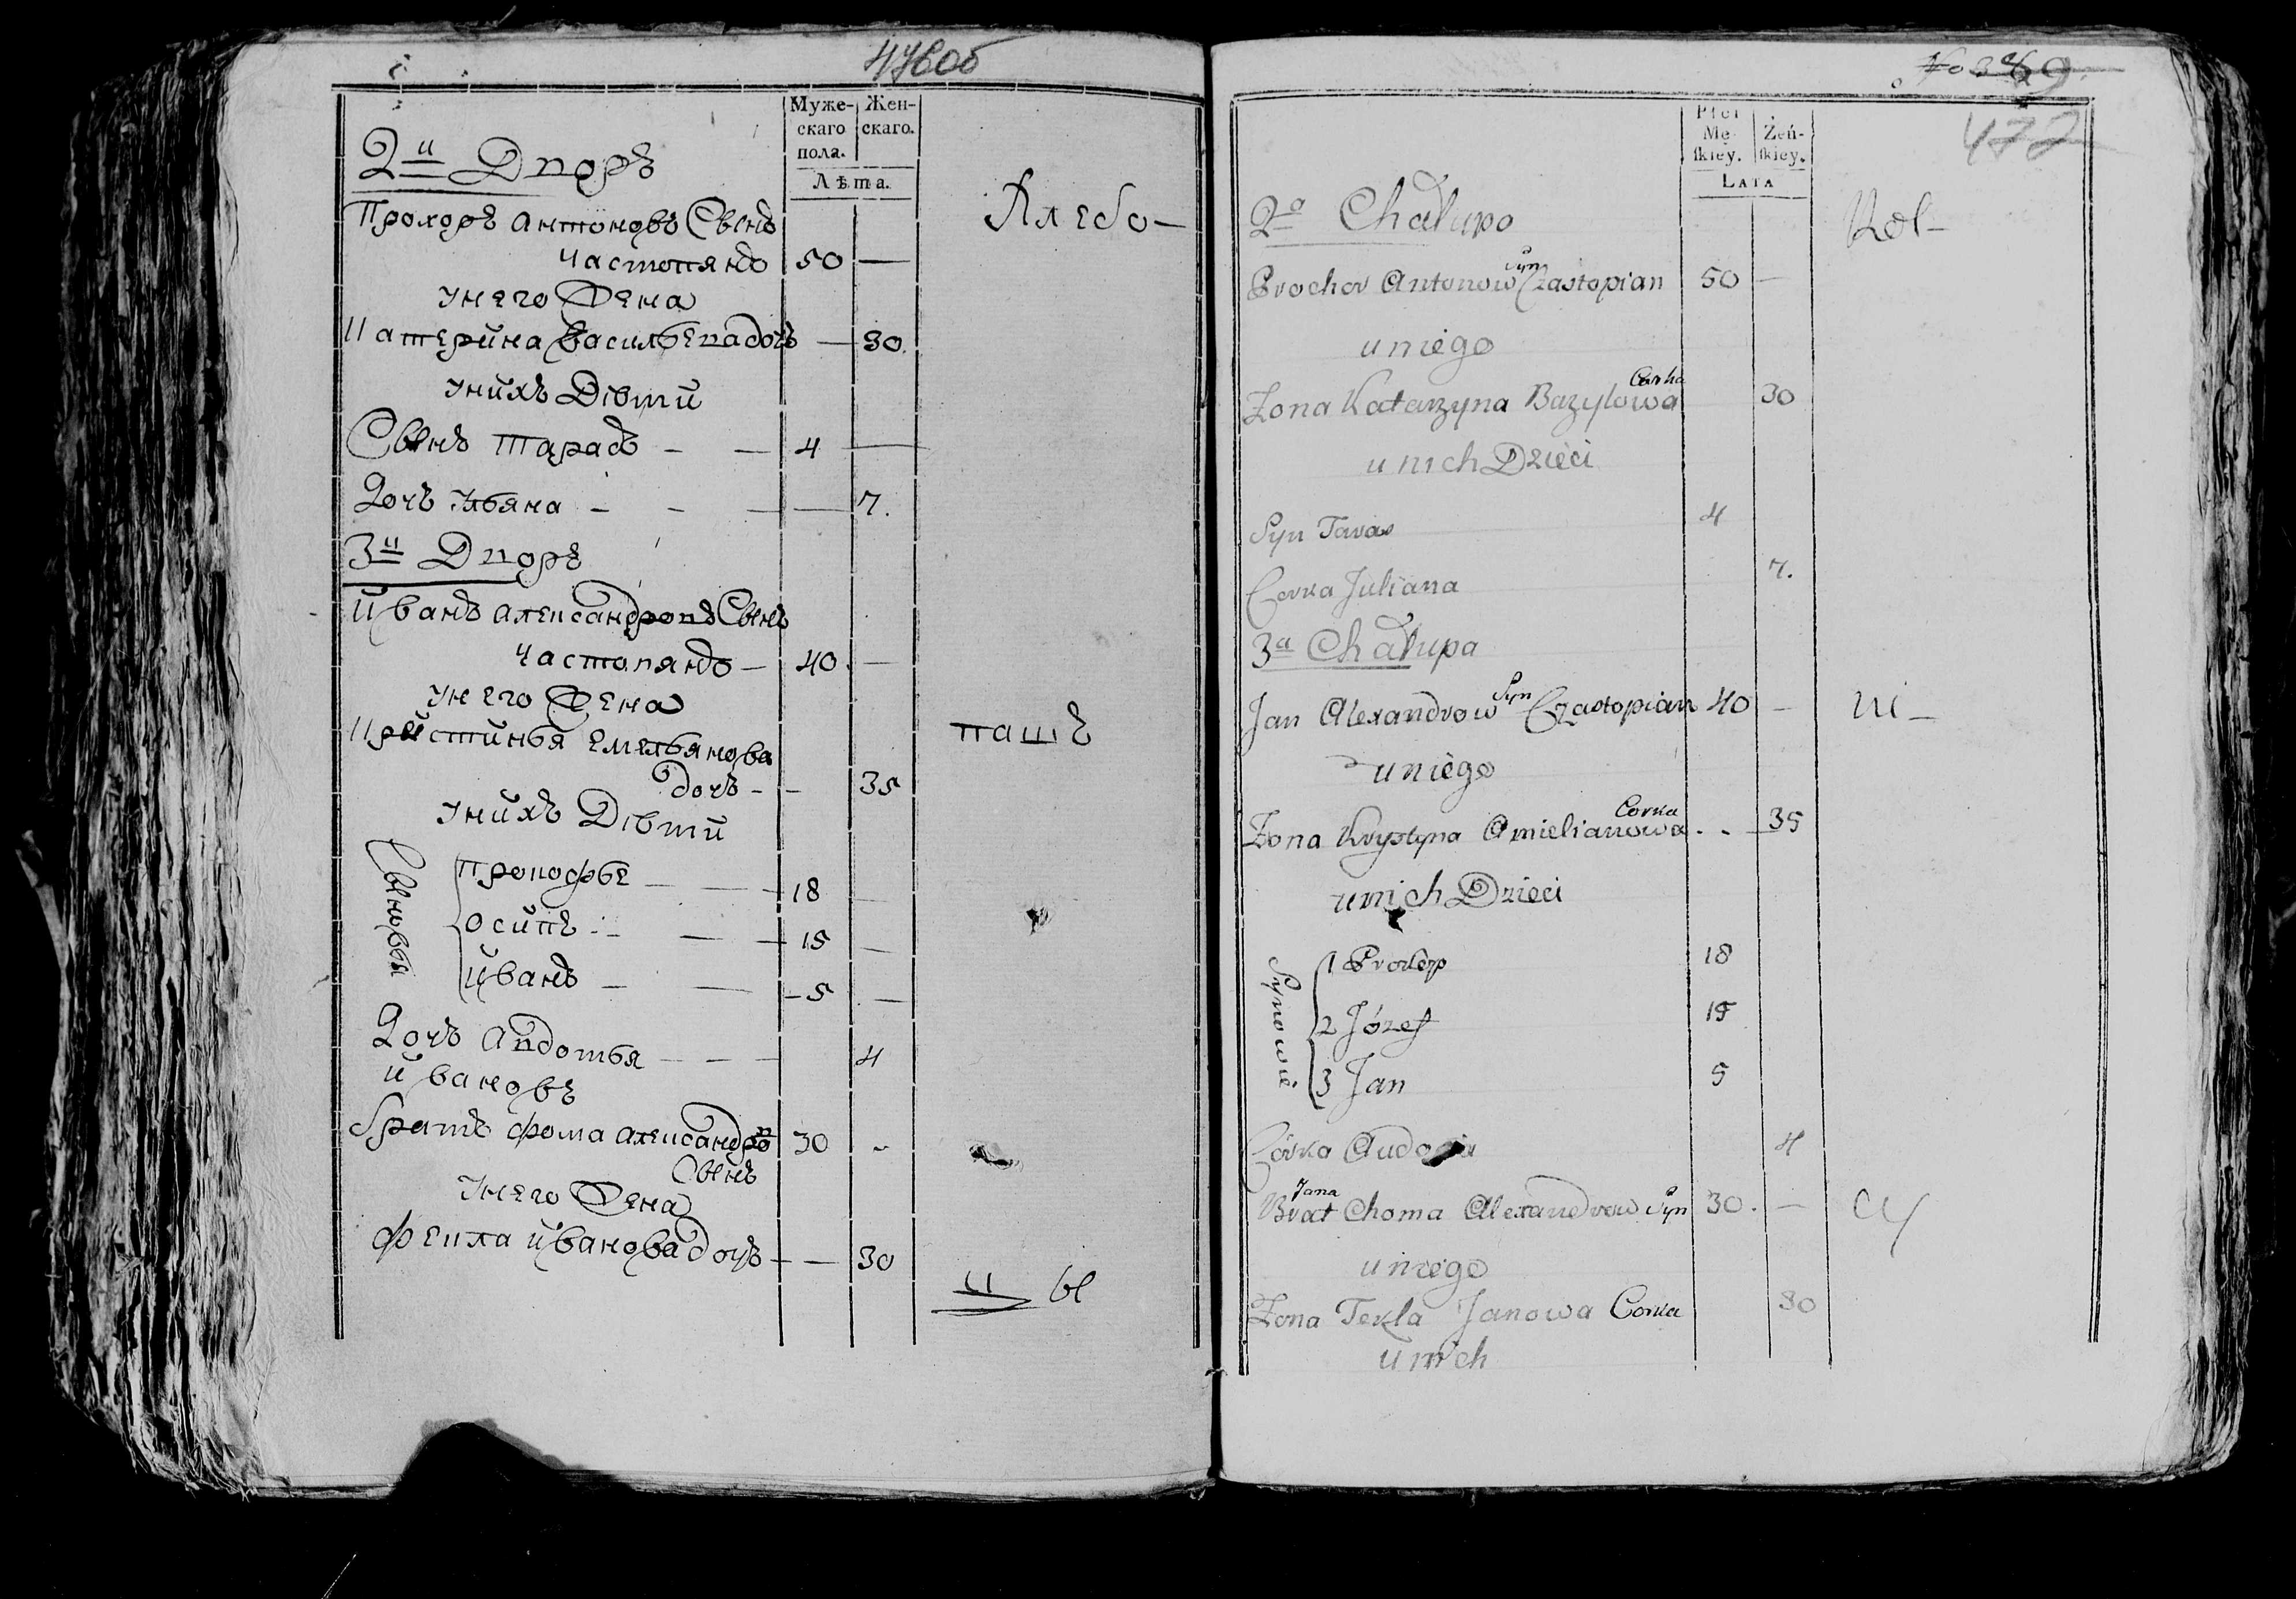 476об
Муже- Жен-
скаго скаго.
пола.
Лѣта.
2й Дворъ
Хлебо-
Прохоръ Антоновъ Сынъ
Частопянъ 50 —
у него Жена
Катерина Васильева дочь — 30.
у нихъ Дѣти
Сынъ Тарасъ — — 4 —
Дочь Ульяна — — — — 7.
3й Дворъ
Иванъ Александровъ Сынъ
Частопянъ — 40. —
у него Жена
Кристинья Емельянова
пашъ
дочь - - 35
у нихъ Дѣти
Сыновья
Прокофье — — 18 —
Осипъ — — 15 —
Иванъ — — 5 —
Дочь Авдотья — — — 4
Ивановъ
братъ Фома Александровъ 30 -
Сынъ
у него Жена
Фекла Иванова дочь — — 30
ц ы
No 369
477
Płci
Mę- Żeń-
skiey. skiey.
LATA
2a Chałupa
Rol-
Prochor Antonow Syn Czastopian 50 —
u niego
Zona Katarzyna Bazylowa Corka 30
u nich Dzieci
Syn Taras 4
Corka Juliana 7.
3a Chałupa
Jan Alexandrow Syn Czastopian 40 — ni-
u niego
Zona Krystyna Amielianowa Corka . . — 35
u nich Dzieci
Synowie
1 Prokop 18
2 Józef 15
3 Jan 5
Córka 4
Jana
Brat Choma Alexandrow Syn 30. — cy
u niego
Zona Tekla Janowa Corka 30
u nich